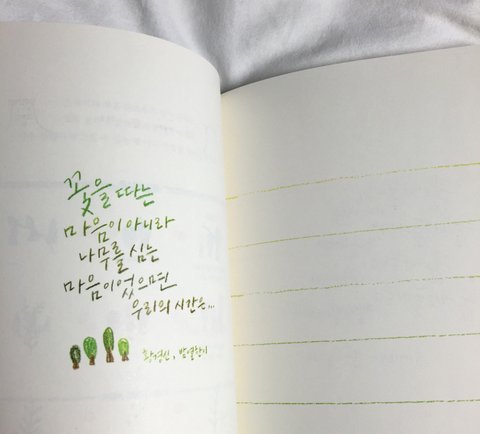 꽃을 따는
마음이 아니라
나무를 심는
마음이었으면
우리의 시간은...
황경신, 밤 열한 시